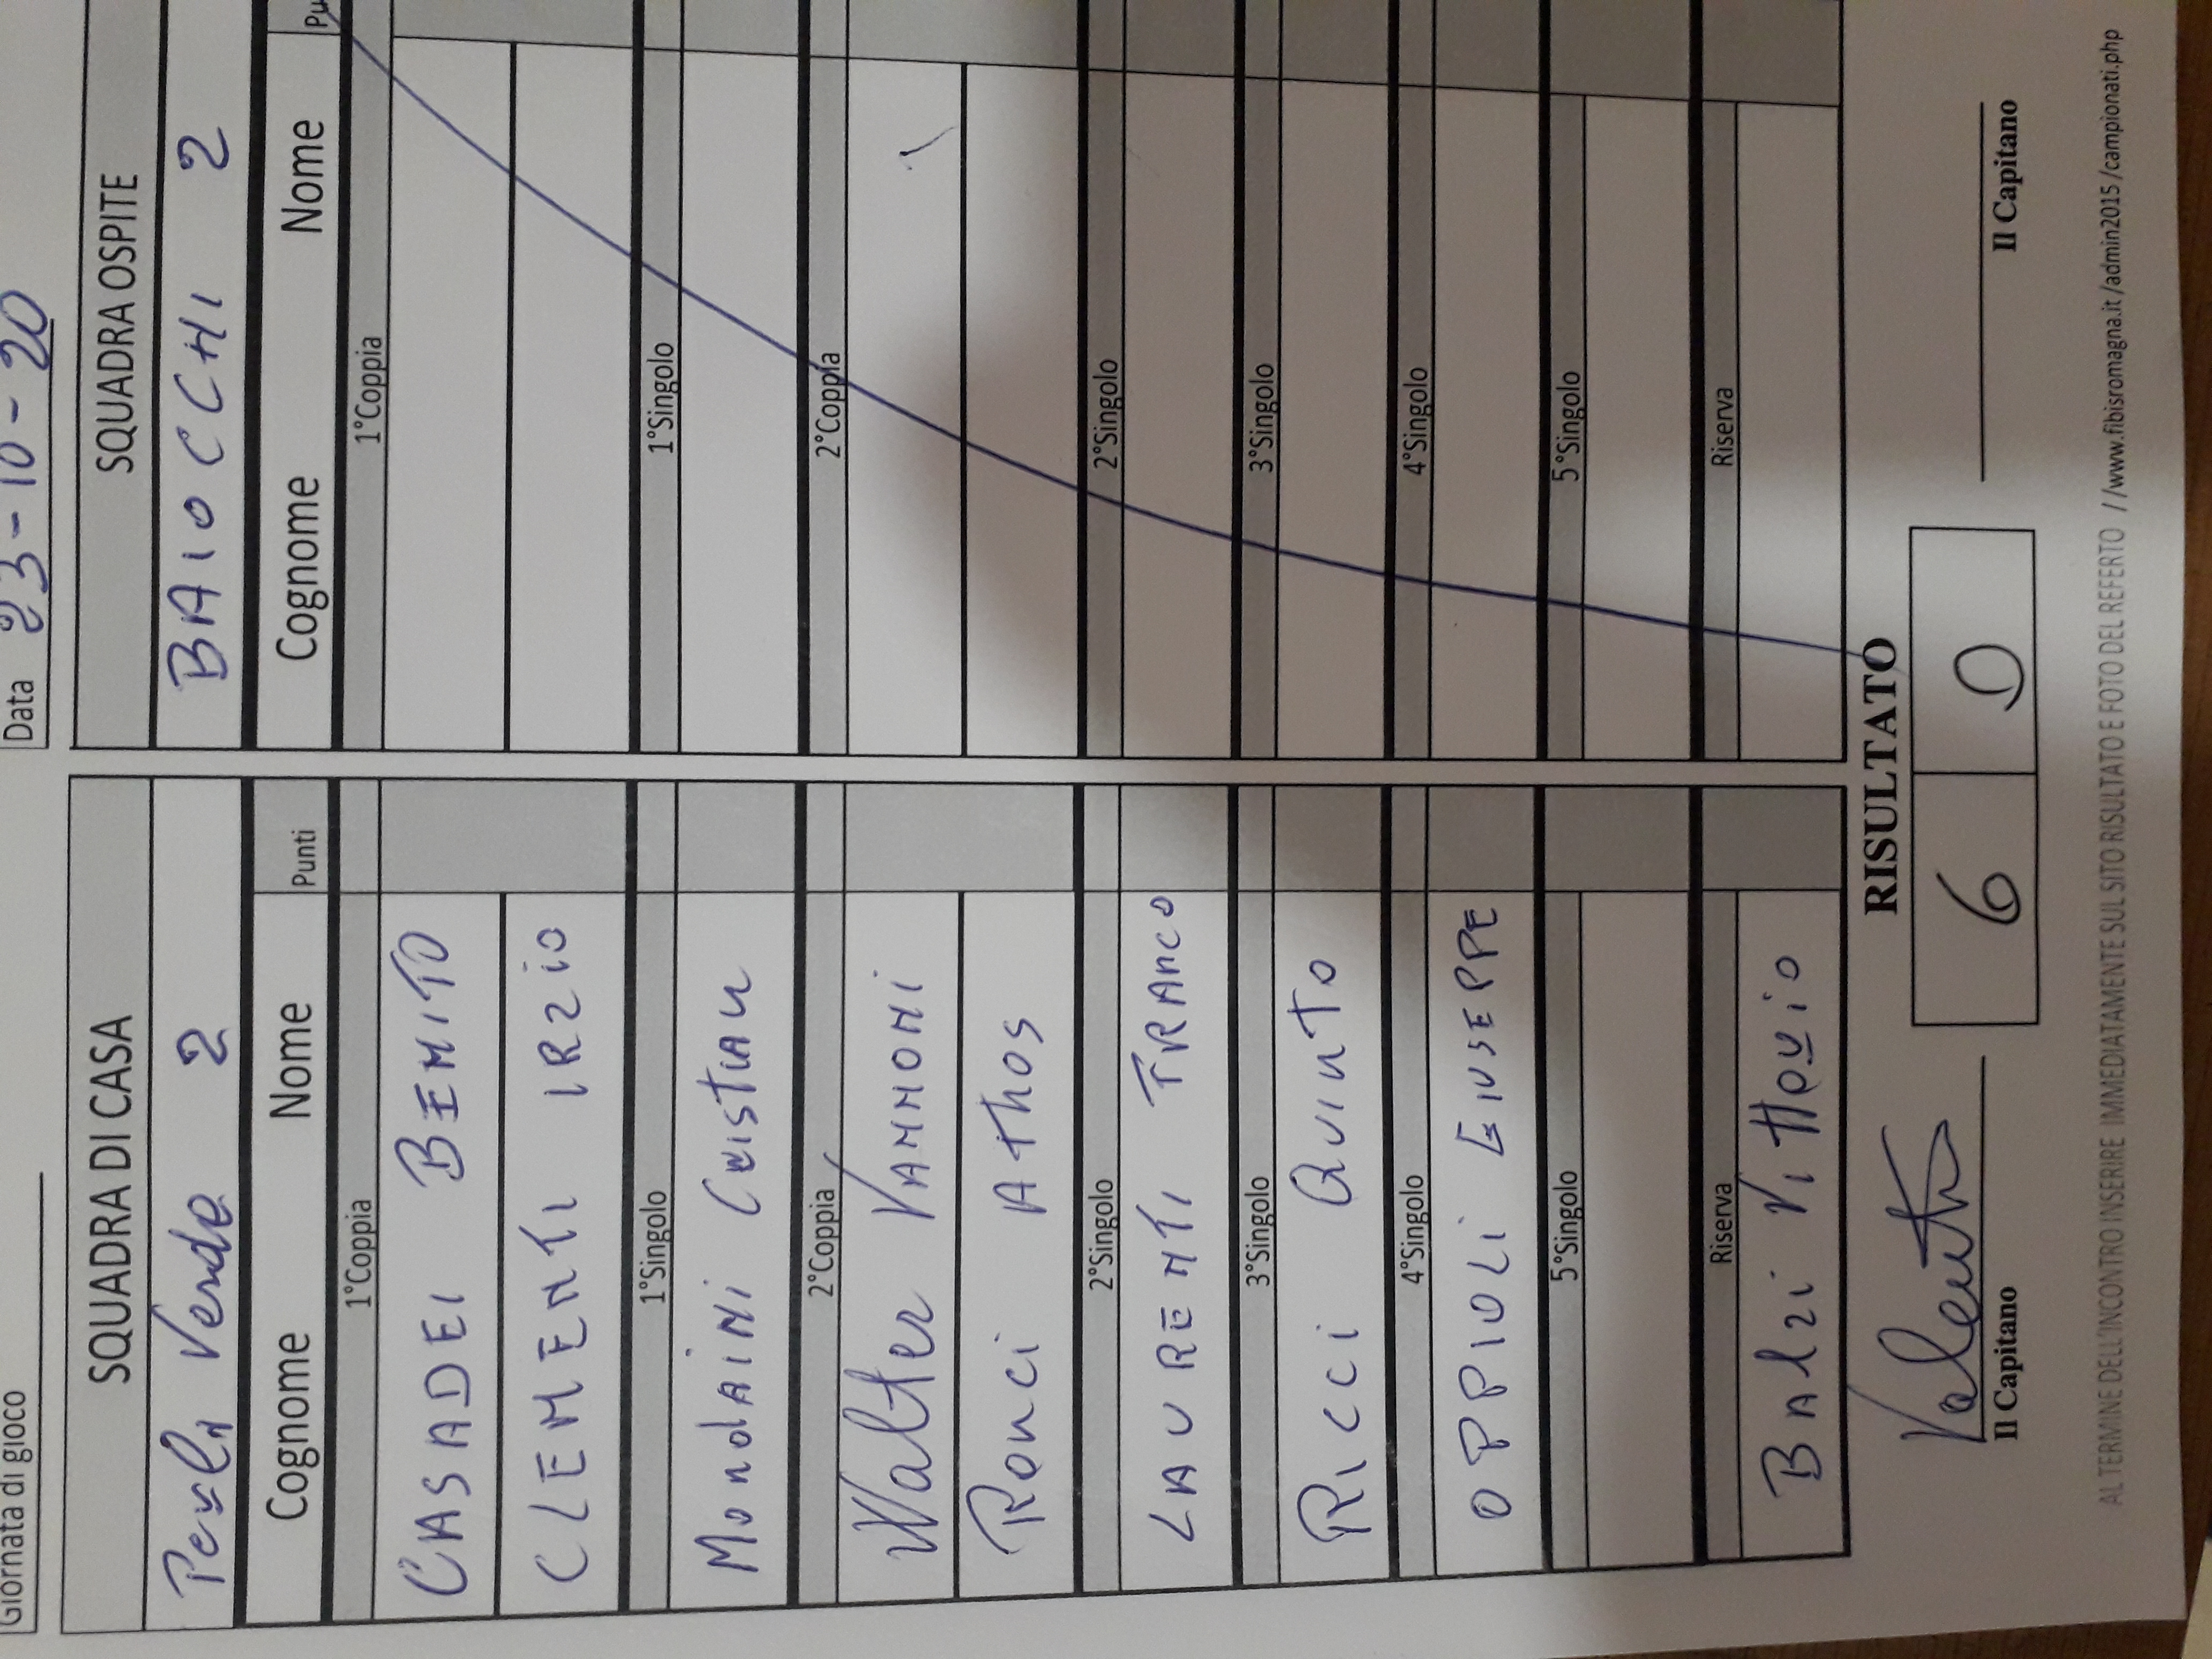 Giornata di gioco
Data 23-10-20
SQUADRA DI CASA
Verde 2
Cognome Nome Punti
1°Coppia
CASADEI BENITO
CLEMENTI IRZIO
1°Singolo
MondAiNi CRISTIAN
2°Coppia
Walter VANNONI
Ronci AThos
2°Singolo
LAURENTI FRANCO
3°Singolo
Ricci QUINTO
4°Singolo
OPPIOLI GIUSEPPE
5°Singolo
Riserva
BAlzi VittoRio
SQUADRA OSPITE
BAIOCCHI 2
Cognome Nome Pu
1°Coppia
1°Singolo
2°Coppia
2°Singolo
3°Singolo
4°Singolo
5°Singolo
Riserva
RISULTATO
6 0
Il Capitano
Il Capitano
AL TERMINE DELL'INCONTRO INSERIRE IMMEDIATAMENTE SUL SITO RISULTATO E FOTO DEL REFERTO //www.fibisromagna.it/admin2015/campionati.php